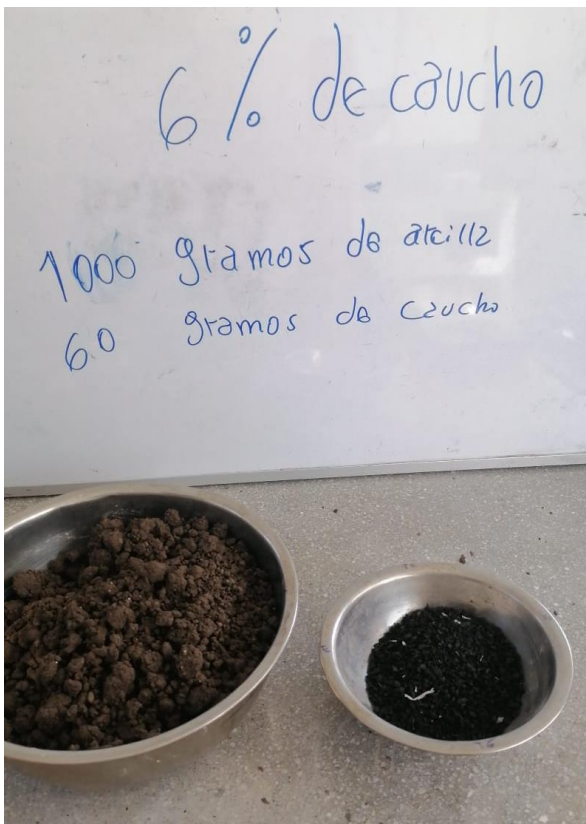 6% de caucho
1000 gramos de arcilla
60 gramos de caucho